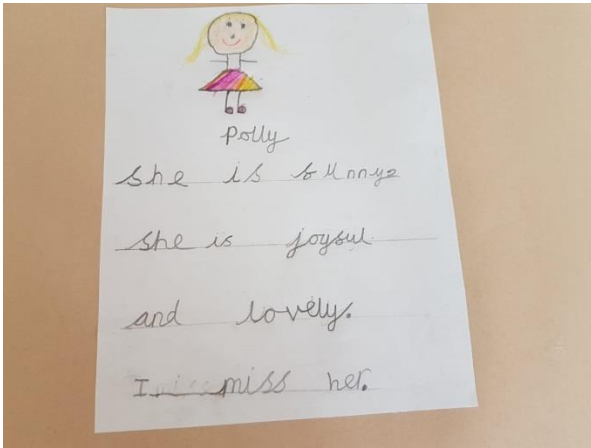 Polly
she is sunnyz
she is joysul
and lovely.
I miss her.